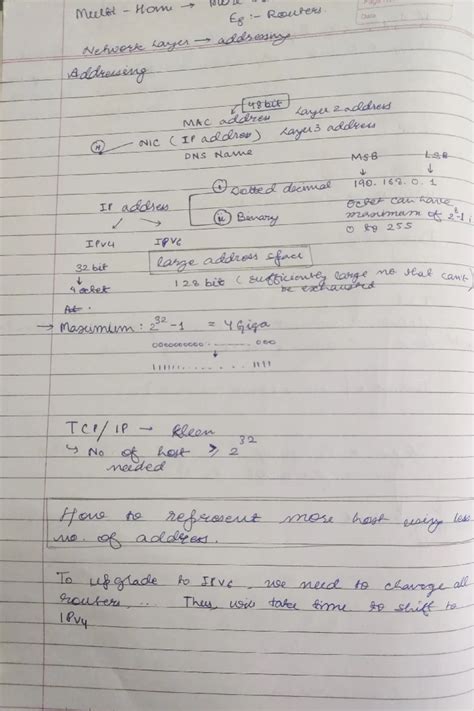 Multi-Hom →
Eg :- Routers
Date
Network Layer → addressing
Addressing
48 bit
MAC address Layer 2 address
H NIC (IP address) Layer 3 address
DNS Name
MSB LSB
i Dotted decimal 190.168.0.1
IP address
ii Binary
octet can have
maximum of 2^8-1,
0 to 255
IPv4 IPv6
large address space
32 bit 128 bit (sufficiently large no that cant
be exhausted
4 octet
→ Maximum : 2^32 - 1 = 4 Giga
TCP/IP →
↳ No of host ≥ 2^32
needed
How to represent more host using less
no. of address.
To upgrade to IPv6, we need to change all
routers, ... This will take time to shift to
IPv4